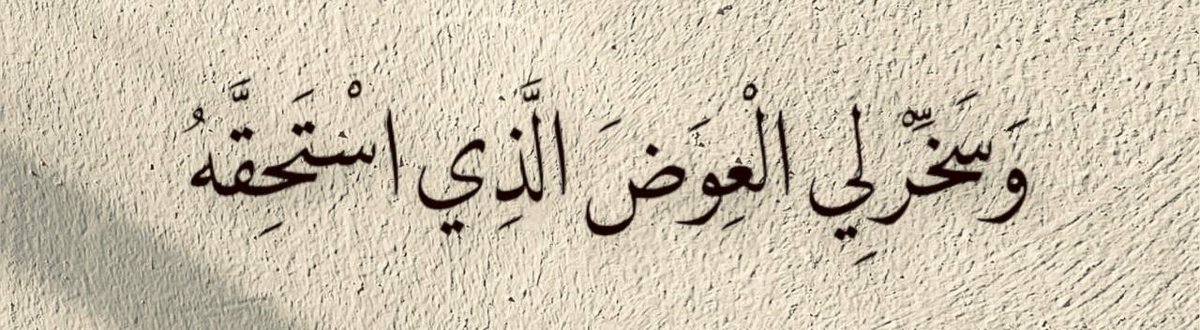 وَسَخِّرْ لِي الْعِوَضَ الَّذِي اسْتَحِقَّهُ